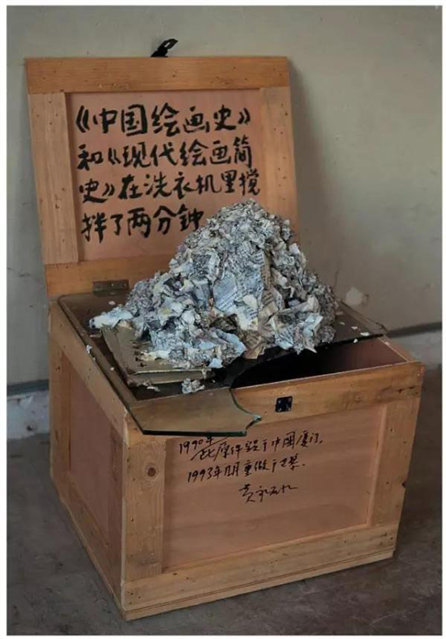 《中国绘画史》
和《现代绘画简
史》在洗衣机里搅
拌了两分钟
1990年
此原件毁于中国厦门,
1993年11月重做于巴黎.
黄永砅